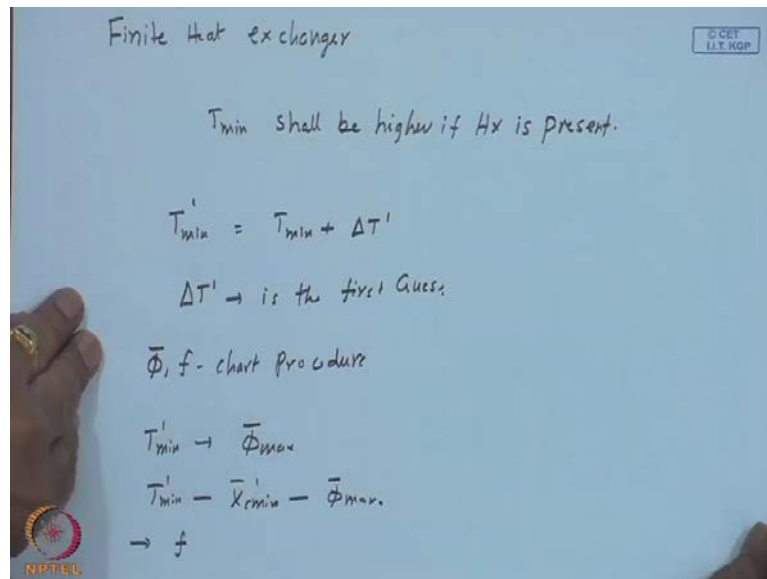 Finite Heat exchanger
© CET
I.I.T. KGP
Tmin shall be higher if Hx is present.
T'min = Tmin + ΔT'
ΔT' → is the first Guess.
Φ̄, f-chart Procedure
T'min → Φ̄max
T'min – X̄'cmin – Φ̄max.
→ f
NPTEL